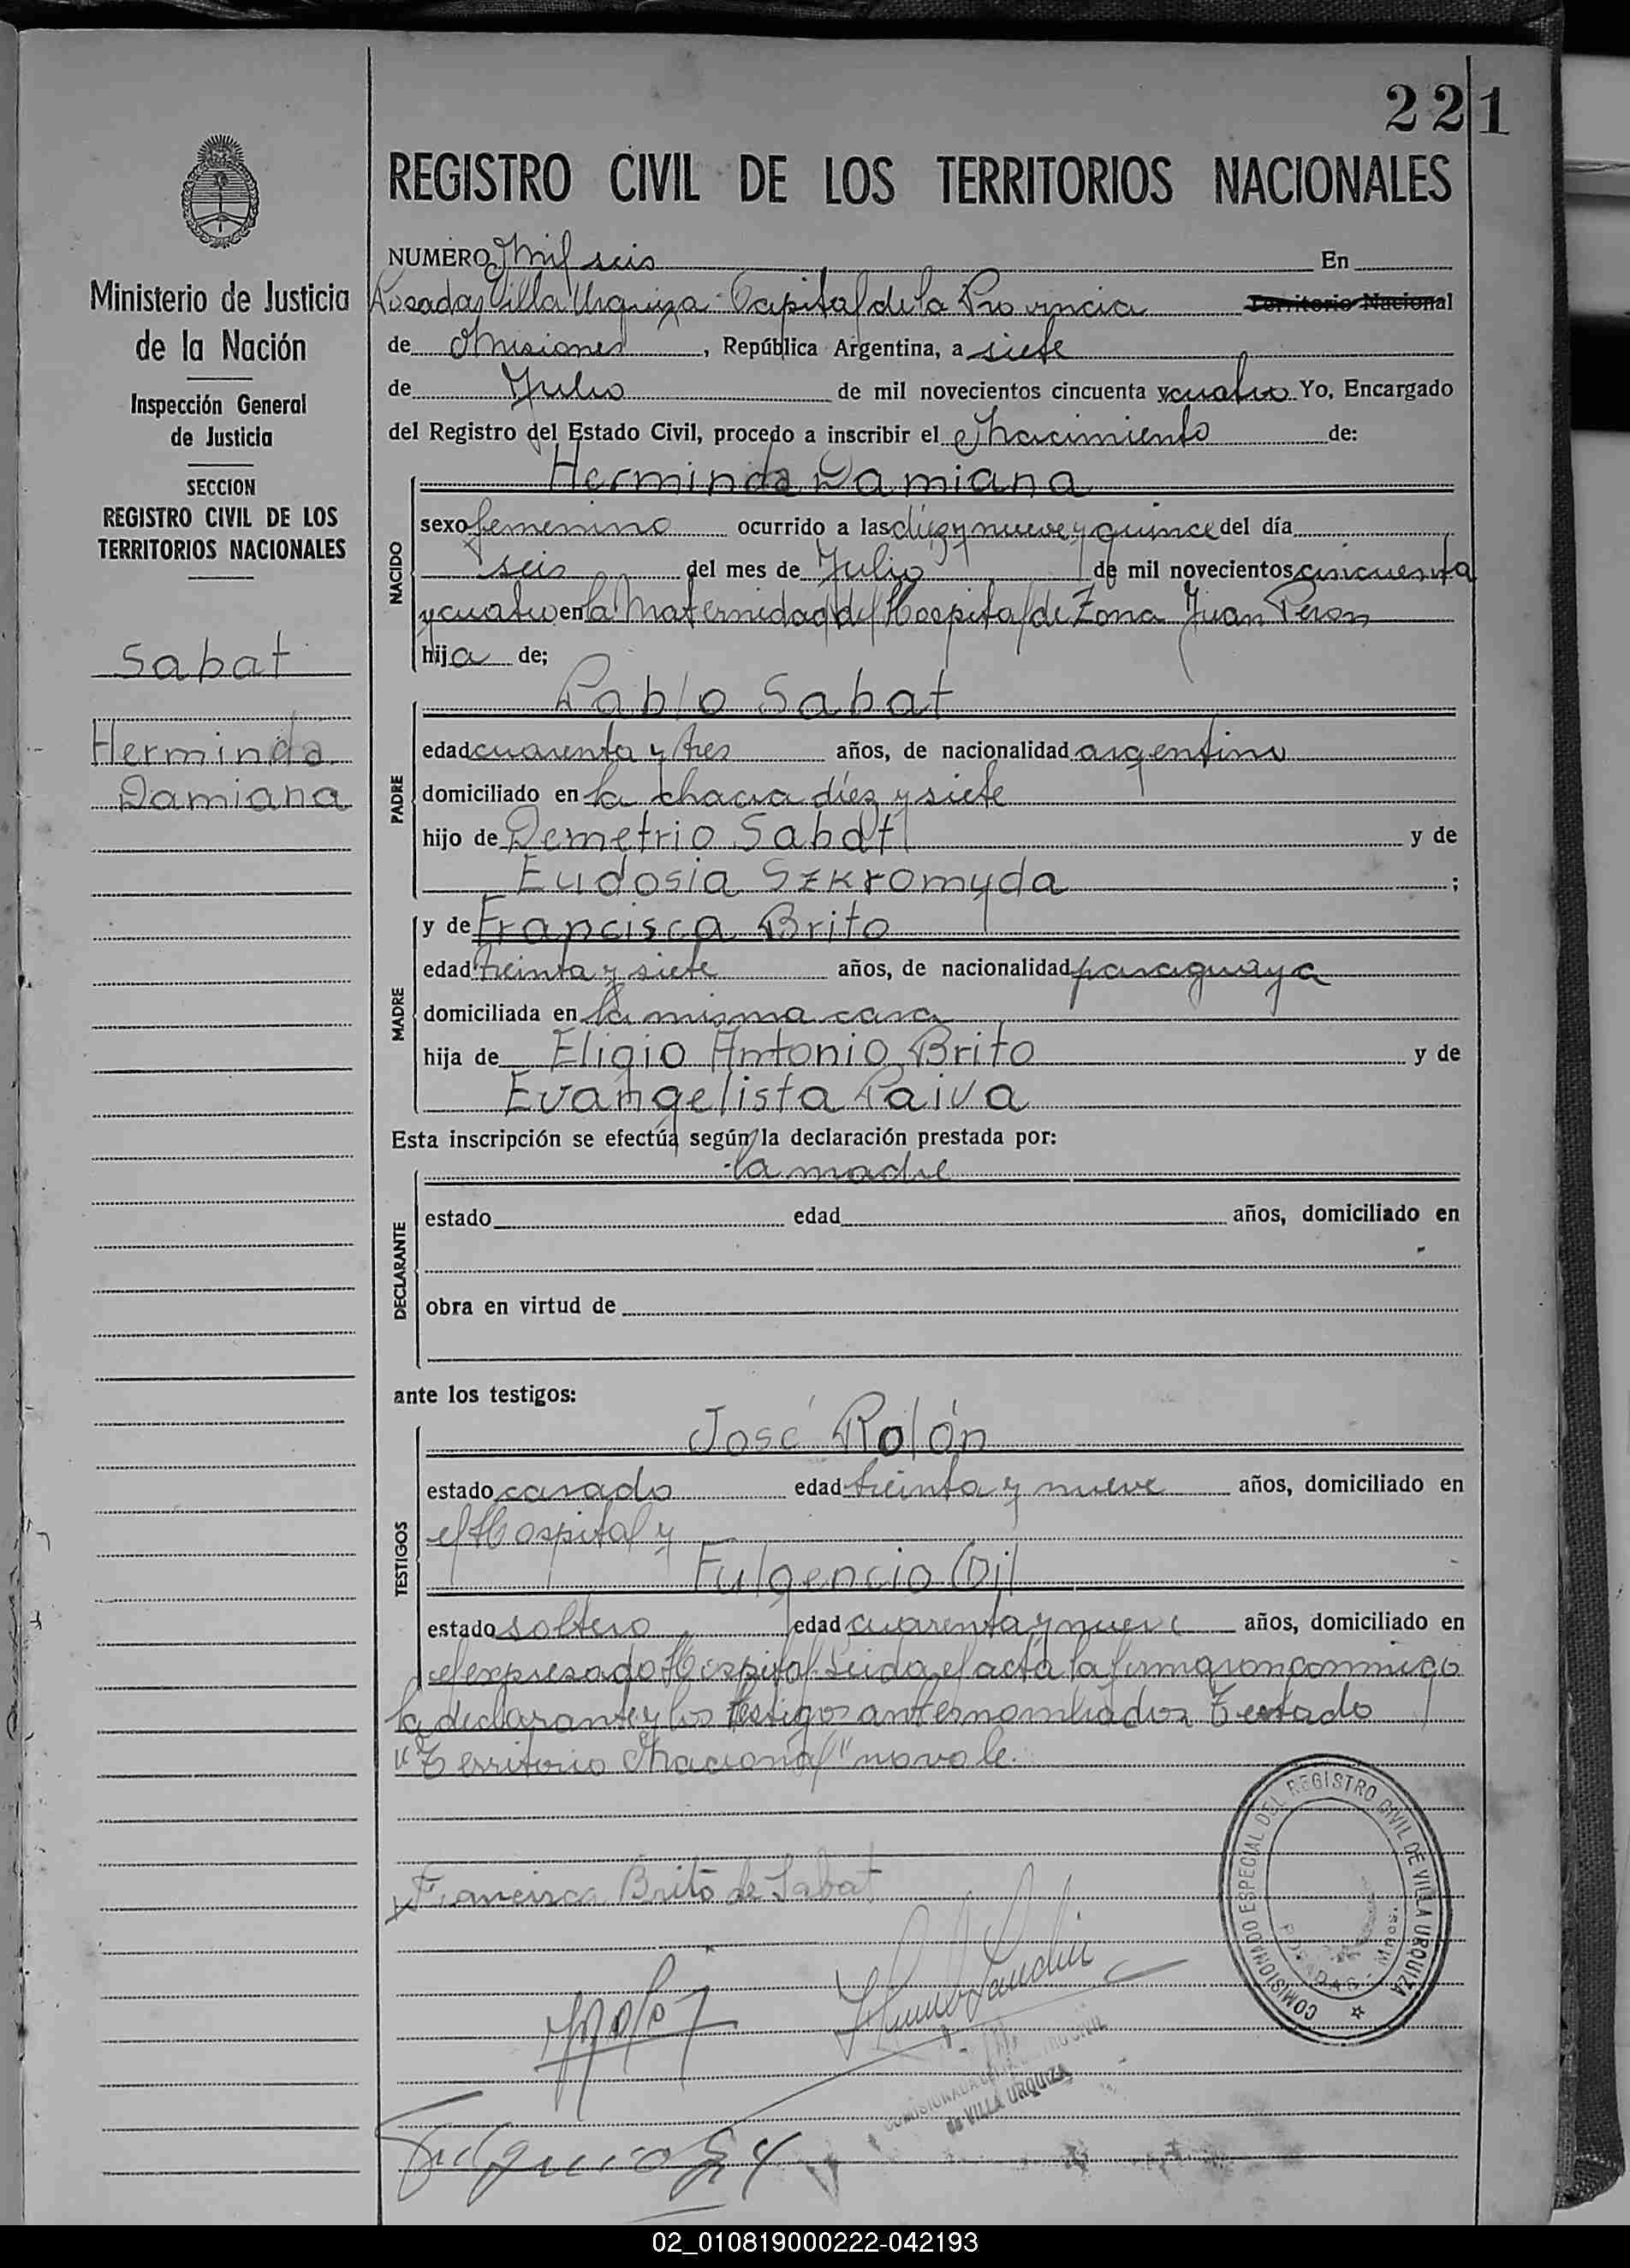 221
REGISTRO CIVIL DE LOS TERRITORIOS NACIONALES
Ministerio de Justicia
de la Nación
Inspección General
de Justicia
SECCION
REGISTRO CIVIL DE LOS
TERRITORIOS NACIONALES
Sabat
Herminda
Damiana
NUMERO Mil seis En
Posadas Villa Urquiza Capital de la Provincia Territorio Nacional
de Misiones, República Argentina, a siete
de Julio de mil novecientos cincuenta y cuatro Yo, Encargado
del Registro del Estado Civil, procedo a inscribir el Nacimiento de:
NACIDO
Herminda Damiana
sexo femenino ocurrido a las diez y nueve y quince del día
seis del mes de Julio de mil novecientos cincuenta
y cuatro en la Maternidad del Hospital de Zona Juan Peron
hija de;
PADRE
Pablo Sabat
edad cuarenta y tres años, de nacionalidad argentino
domiciliado en la chacra diez y siete
hijo de Demetrio Sabat y de
Eudosia Szkromyda ;
MADRE
y de Francisca Brito
edad treinta y siete años, de nacionalidad paraguaya
domiciliada en la misma casa
hija de Eligio Antonio Brito y de
Evangelista Paiva
Esta inscripción se efectúa según la declaración prestada por:
DECLARANTE
la madre
estado edad años, domiciliado en
obra en virtud de
ante los testigos:
TESTIGOS
José Rolón
estado casado edad treinta y nueve años, domiciliado en
el Hospital y
Fulgencio Gil
estado soltero edad cuarenta y nueve años, domiciliado en
el expresado Hospital Leida el acta la firmaron conmigo
la declarante y los testigos antenombrados Testado
"Territorio Nacional" no vale.
Francisca Brito de Sabat
COMISIONADO ESPECIAL DEL REGISTRO CIVIL DE VILLA URQUIZA
POSADAS - Mnes.
de VILLA URQUIZA
02_010819000222-042193